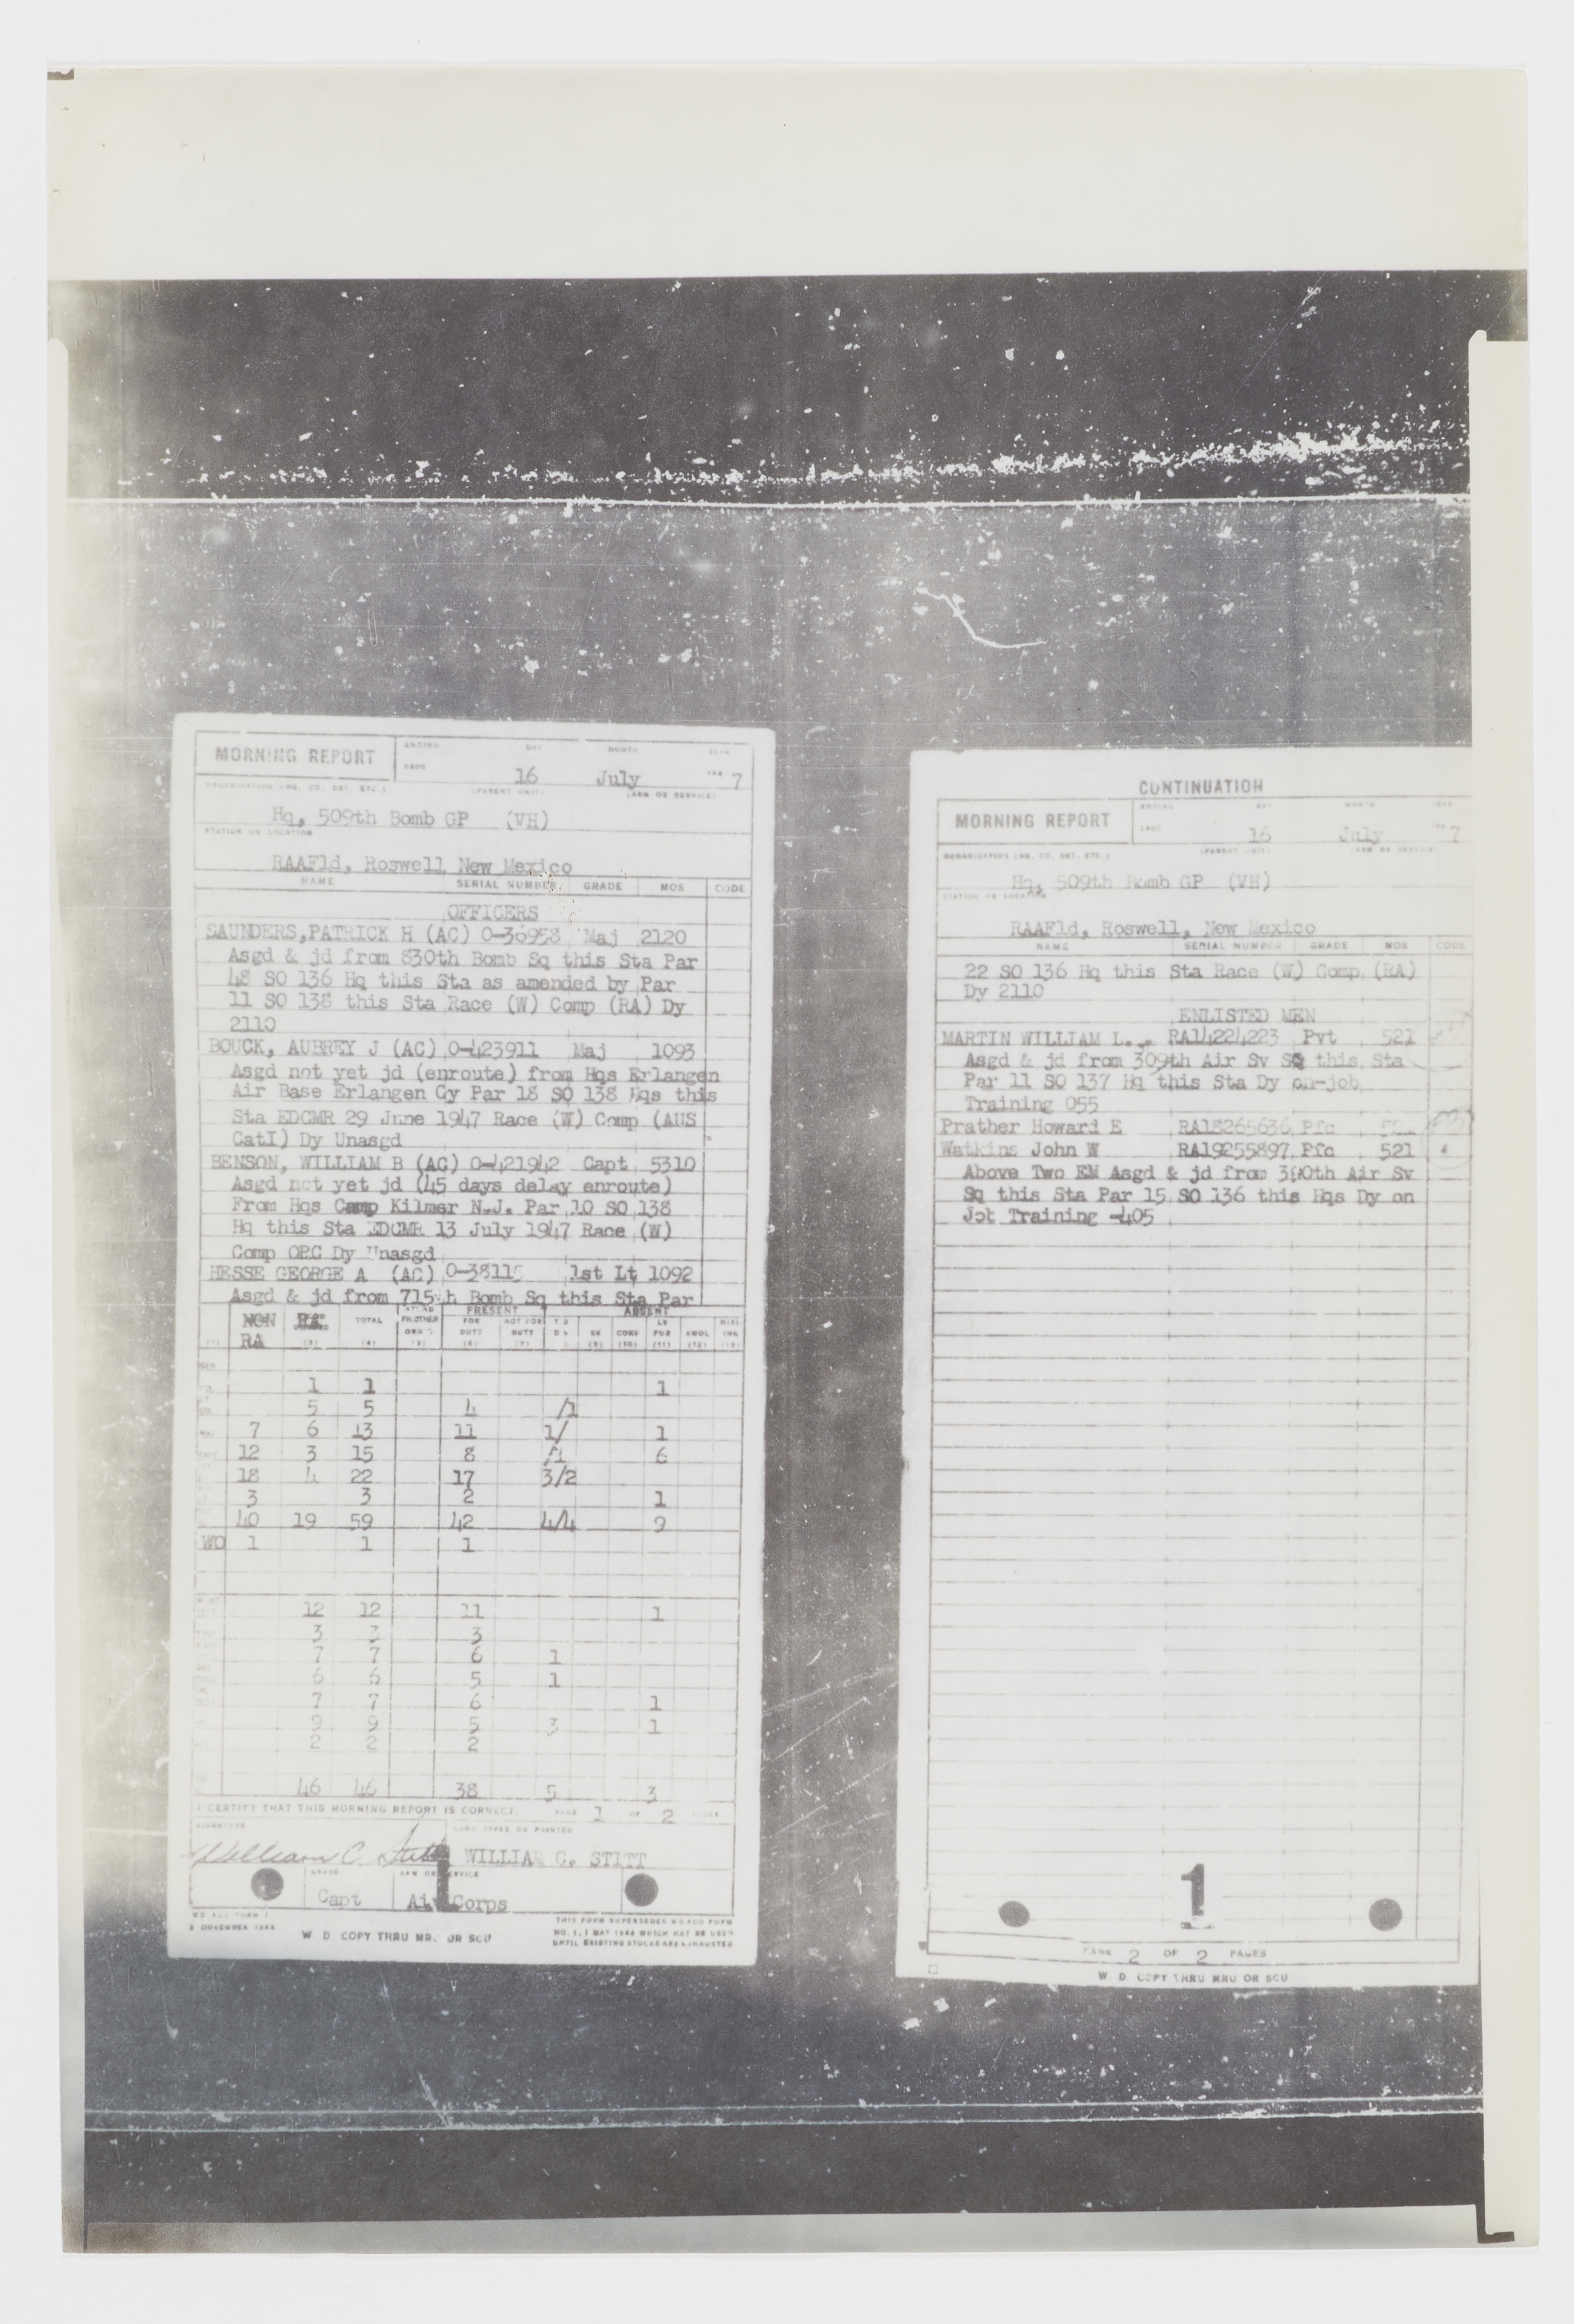 MORNING REPORT
ENDING DAY MONTH
16 July 7
ORGANIZATION (HQ. CO. DET. ETC.) (PARENT UNIT) (ARM OR SERVICE)
Hq, 509th Bomb GP (VH)
STATION OR LOCATION
RAAFld, Roswell, New Mexico
NAME SERIAL NUMBER GRADE MOS CODE
OFFICERS
SAUNDERS,PATRICK H (AC) O-36958 Maj 2120
Asgd & jd from 830th Bomb Sq this Sta Par
48 SO 136 Hq this Sta as amended by Par
11 SO 138 this Sta Race (W) Comp (RA) Dy
2110
BOUCK, AUBREY J (AC) O-423911 Maj 1093
Asgd not yet jd (enroute) from Hqs Erlangen
Air Base Erlangen Gy Par 18 SO 138 Hqs this
Sta EDCMR 29 June 1947 Race (W) Comp (AUS
CatI) Dy Unasgd
BENSON, WILLIAM B (AC) O-421942 Capt 5310
Asgd not yet jd (45 days delay enroute)
From Hqs Camp Kilmer N.J. Par 10 SO 138
Hq this Sta EDCMR 13 July 1947 Race (W)
Comp ORC Dy Unasgd
HESSE GEORGE A (AC) O-38115 1st Lt 1092
Asgd & jd from 715th Bomb Sq this Sta Par
PRESENT ABSENT
NON RA TOTAL FOR NOT FOR
RA DUTY DUTY SK CONF AWOL
1 1 1
5 5 4 /1
7 6 13 11 1/ 1
12 3 15 8 /1 6
18 4 22 17 3/2
3 3 2 1
40 19 59 42 4/4 9
WO 1 1 1
12 12 11 1
3 3 3
7 7 6 1
6 6 5 1
7 7 6 1
9 9 5 3 1
2 2 2
46 46 38 5 3
I CERTIFY THAT THIS MORNING REPORT IS CORRECT. PAGE 1 OF 2 PAGES
SIGNATURE NAME TYPED OR PRINTED
William C Stitt WILLIAM C. STITT
GRADE ARM OR SERVICE
Capt Air Corps
1
W. D. COPY THRU MRU OR SCU
THIS FORM SUPERSEDES WD AGO FORM
NO. 1, 1 MAY 1944 WHICH MAY BE USED
UNTIL EXISTING STOCKS ARE EXHAUSTED
CONTINUATION
MORNING REPORT
ENDING DAY MONTH
16 July 7
ORGANIZATION (HQ. CO. DET. ETC.) (PARENT UNIT) (ARM OR SERVICE)
Hq, 509th Bomb GP (VH)
STATION OR LOCATION
RAAFld, Roswell, New Mexico
NAME SERIAL NUMBER GRADE MOS CODE
22 SO 136 Hq this Sta Race (W) Comp (RA)
Dy 2110
ENLISTED MEN
MARTIN WILLIAM L. RA14224223 Pvt 521
Asgd & jd from 309th Air Sv SQ this Sta
Par 11 SO 137 Hq this Sta Dy on-job
Training 055
Prather Howard E RA18265636 Pfc 521
Watkins John W RA19255897 Pfc 521
Above Two EM Asgd & jd from 390th Air Sv
Sq this Sta Par 15 SO 136 this Hqs Dy on
Job Training -405
1
PAGE 2 OF 2 PAGES
W. D. COPY THRU MRU OR SCU